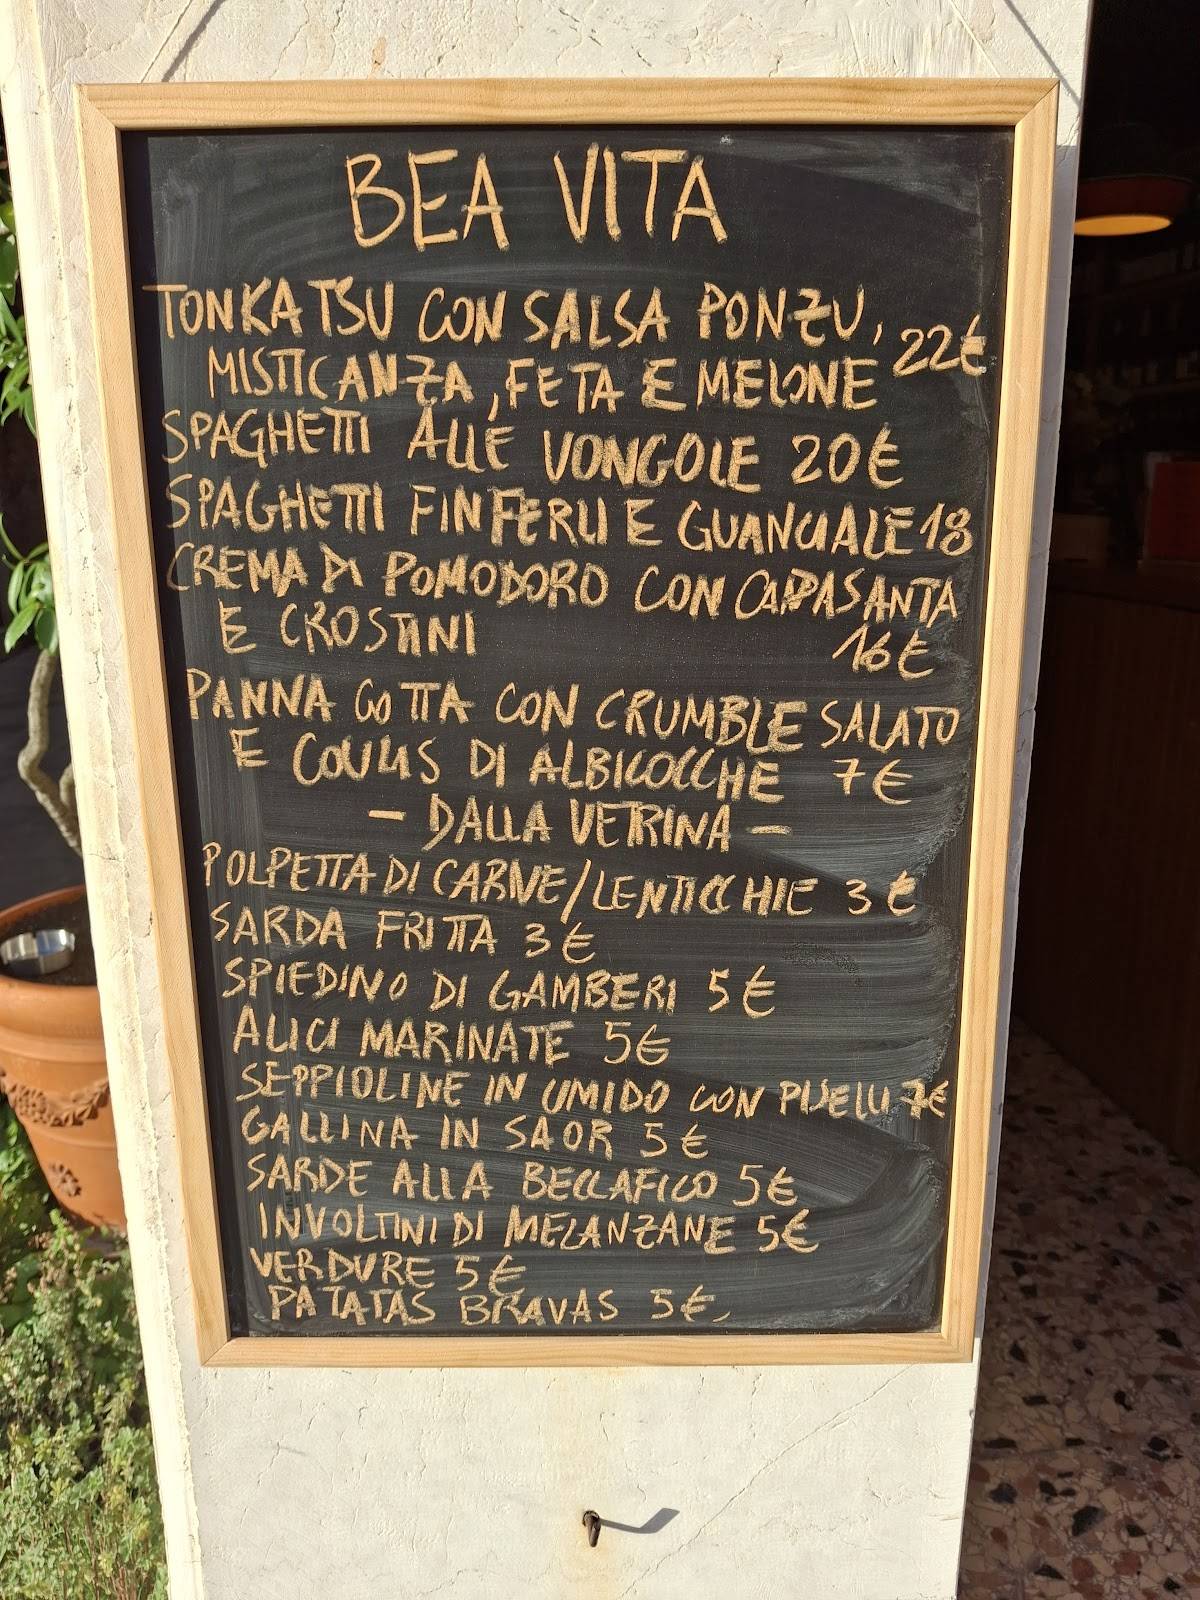 BEA VITA
TONKATSU CON SALSA PONZU,
MISTICANZA, FETA E MELONE 22€
SPAGHETTI ALLE VONGOLE 20€
SPAGHETTI FINFERLI E GUANCIALE 18
CREMA DI POMODORO CON CAPPASANTA
E CROSTINI 16€
PANNA COTTA CON CRUMBLE SALATO
E COULIS DI ALBICOCCHE 7€
- DALLA VETRINA -
POLPETTA DI CARNE/LENTICCHIE 3€
SARDA FRITTA 3€
SPIEDINO DI GAMBERI 5€
ALICI MARINATE 5€
SEPPIOLINE IN UMIDO CON PISELLI 7€
GALLINA IN SAOR 5€
SARDE ALLA BECCAFICO 5€
INVOLTINI DI MELANZANE 5€
VERDURE 5€
PATATAS BRAVAS 5€